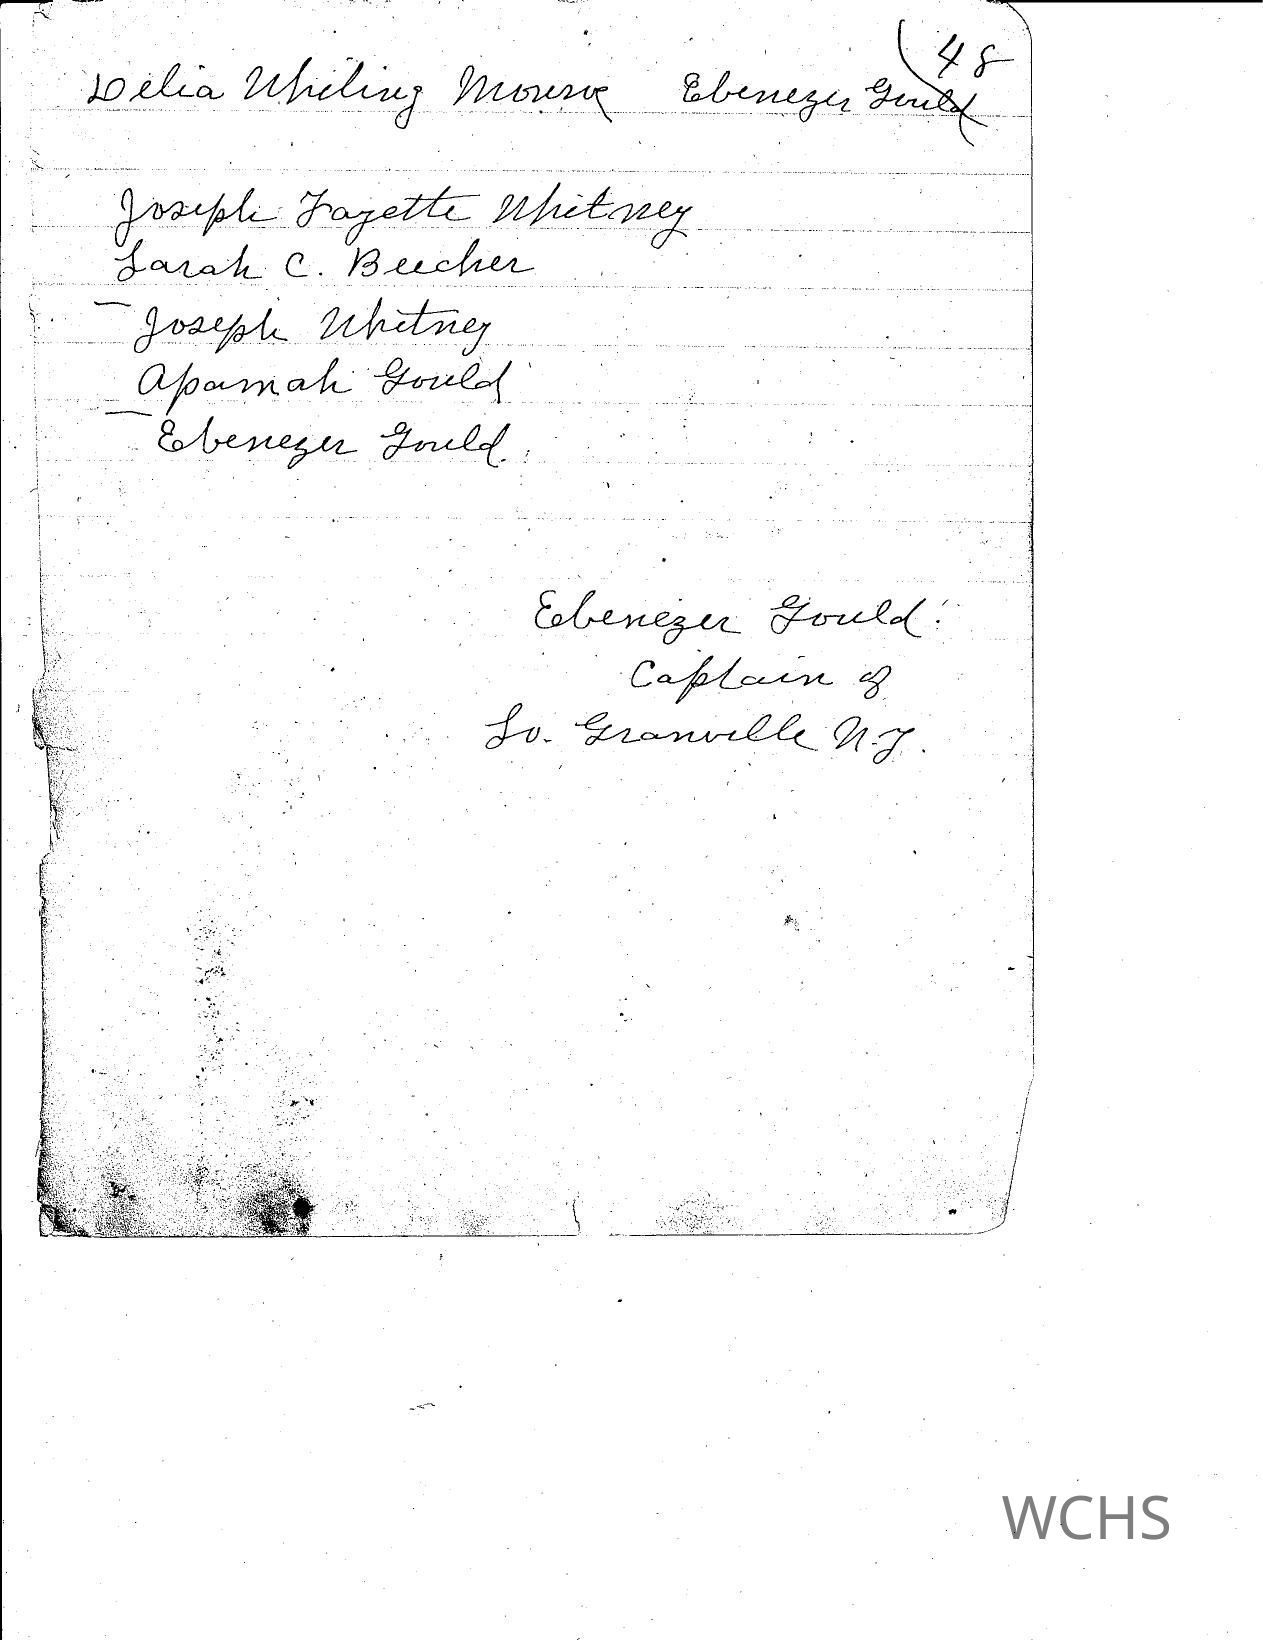 48
Delia Whiting Monroe Ebenezer Gould
Joseph Fayette Whitney
Sarah C. Beecher
Joseph Whitney
Apamah Gould
Ebenezer Gould.
Ebenezer Gould.
Captain of
So. Granville N.Y.
WCHS